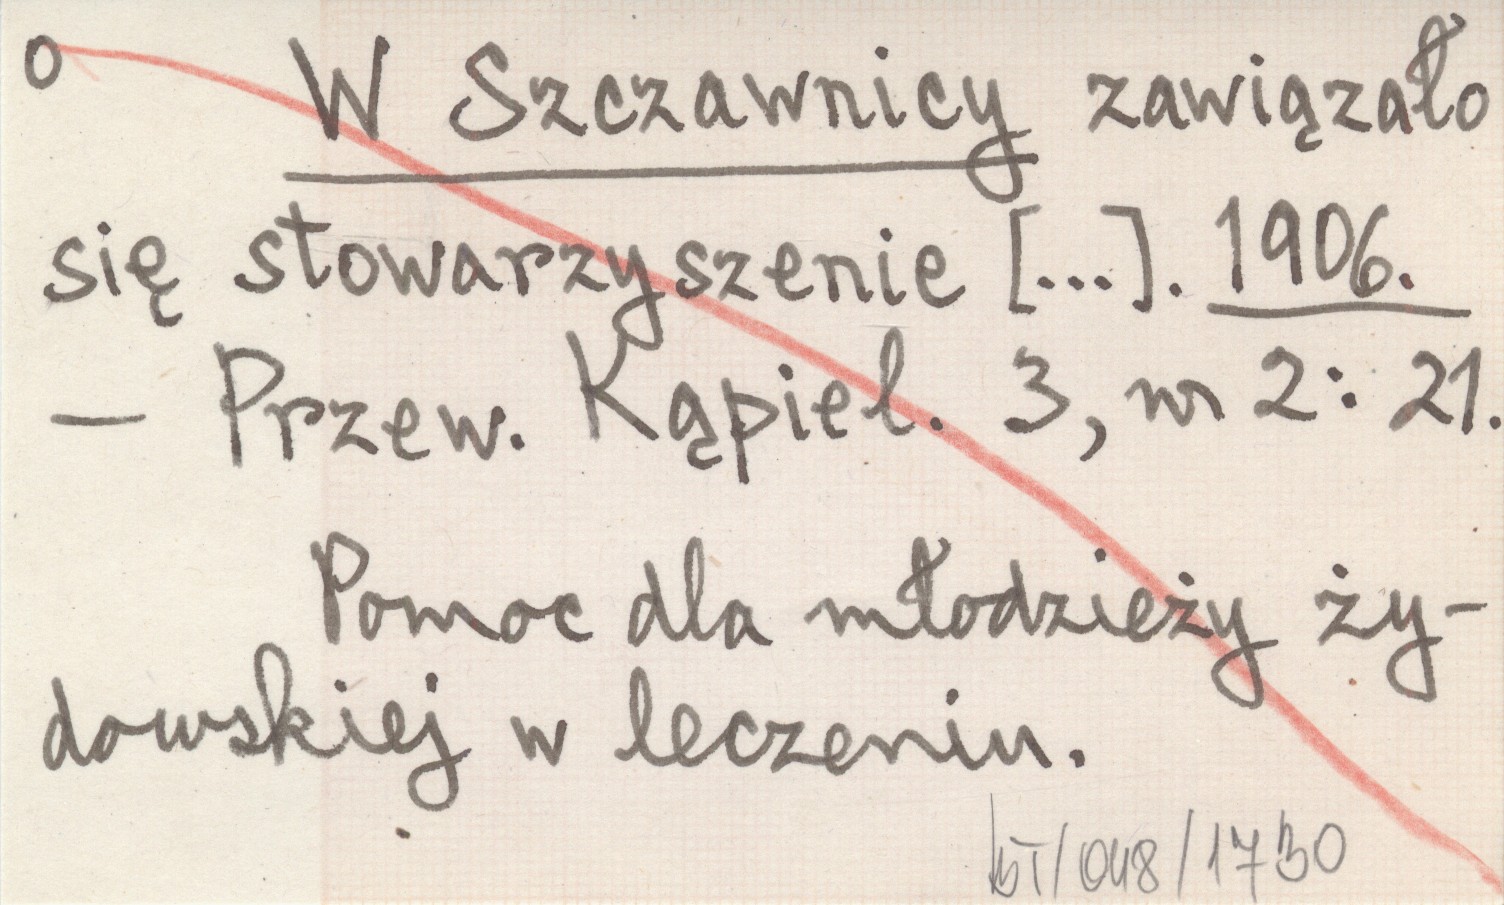 o W Szczawnicy zawiązało
się stowarzyszenie [...]. 1906.
— Przew. Kąpiel. 3, nr 2: 21.
Pomoc dla młodzieży ży-
dowskiej w leczeniu.
bT/048/1730